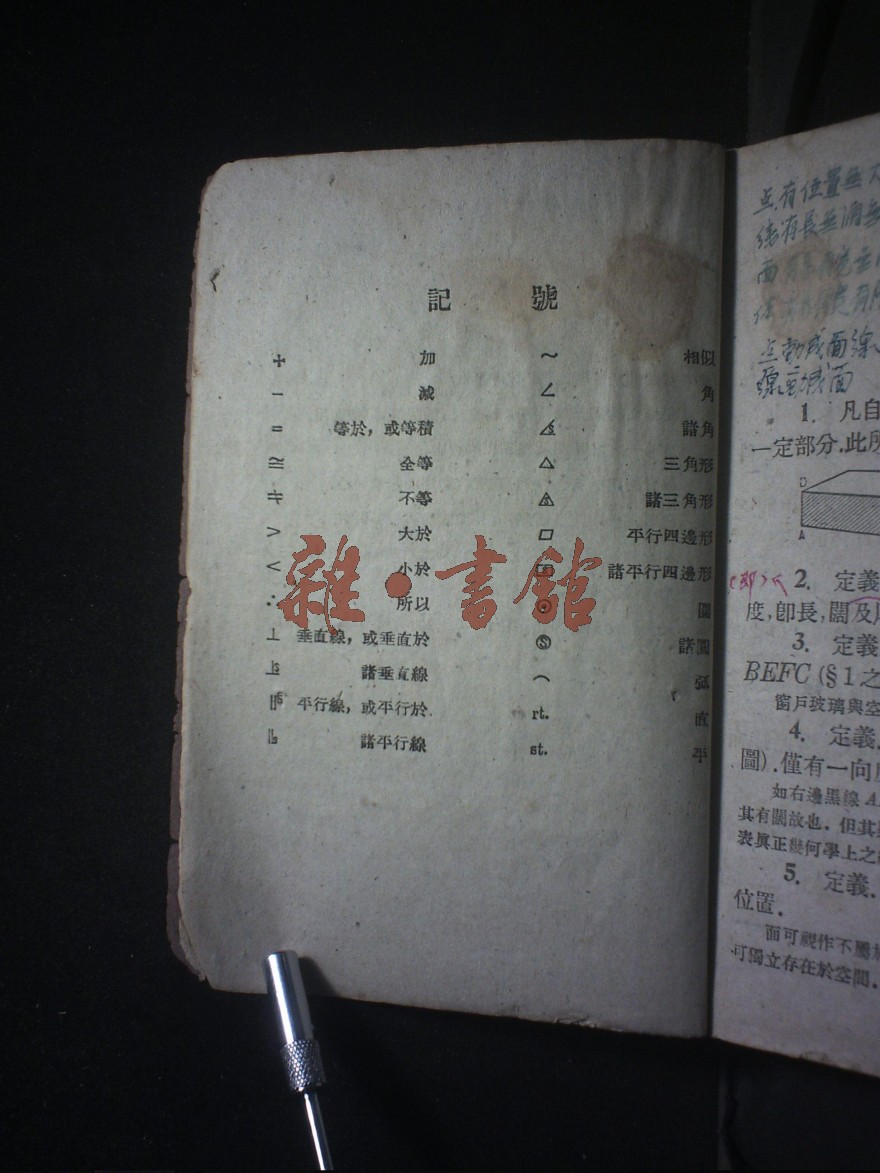 記 號
+ 加 ～ 相似
− 減 ∠ 角
= 等於，或等積 諸角
≅ 全等 △ 三角形
≠ 不等 諸三角形
> 大於 ▱ 平行四邊形
< 小於 諸平行四邊形
∴ 所以 ⊙ 圓
⊥ 垂直線，或垂直於 Ⓢ 諸圓
⊥s 諸垂直線 ⌒ 弧
∥ 平行線，或平行於 rt. 直
∥s 諸平行線 st. 平
雜·書館
点有位置無
線有長無濶無
面
点動成面線
線動成面
1. 凡自
一定部分．此所
D
A
2. 定義
度，卽長，闊及厚
3. 定義
BEFC (§1之
窗戶玻璃與空
4. 定義．
圖)．僅有一向度
如右邊黑線 A
其有闊故也．但其
表眞正幾何學上之
5. 定義．
位置．
面可視作不屬於
可獨立存在於空間．